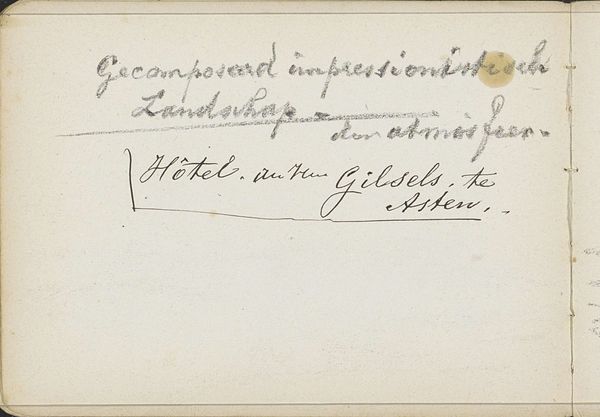 Gecomposeerd impressionistisch
Landschap =
den atmosfeer.
Hôtel. Gilsels. te
Asten.